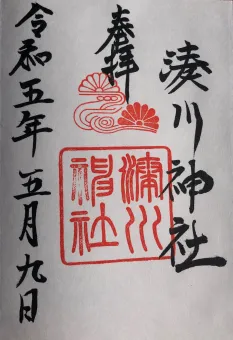 湊川神社
奉拝
湊川神社
令和五年五月九日